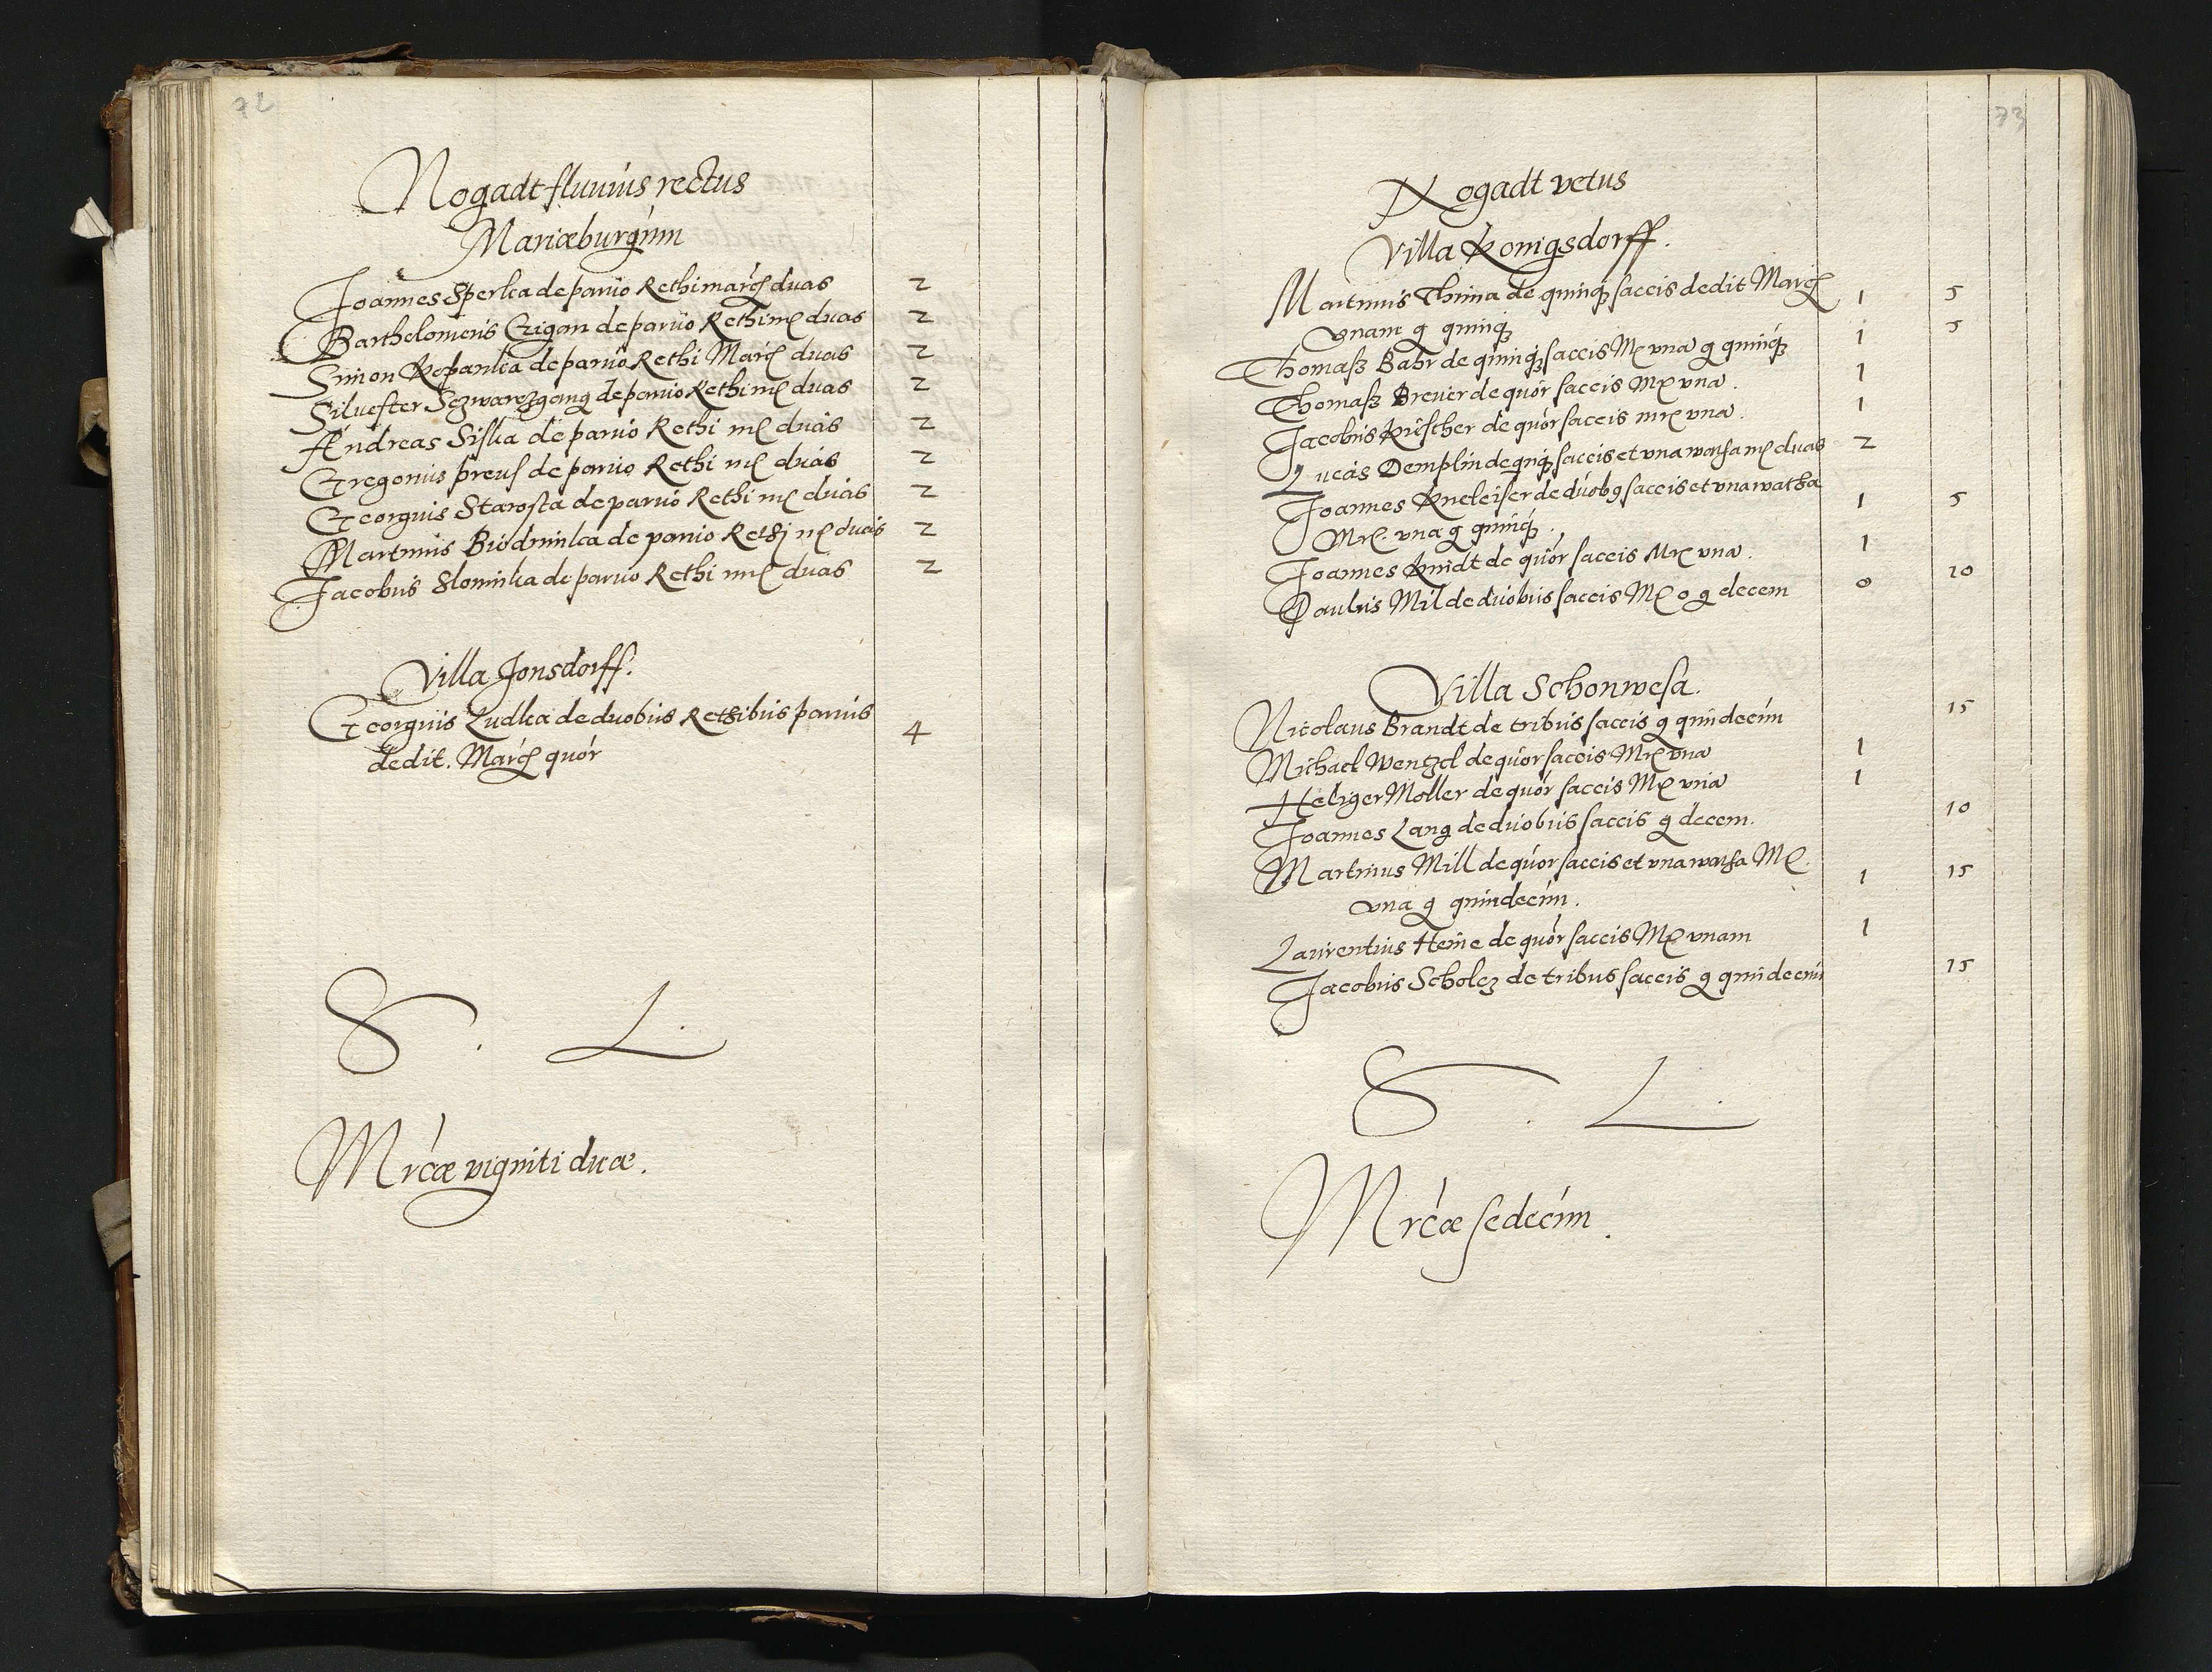 72
Nogadt fluuius rectus
Mariæburgum
Joannes Sperlca de paruo Rethi marcs duas 2
Bartholomeus Czigan de paruo Rethi mcs duas 2
Simon Kopanka de paruo Rethi Marcs duas 2
Siluester Sczwarczgang de paruo Rethi mcs duas 2
Andreas Siska de paruo Rethi mcs duas 2
Gregorius preus de paruo Rethi mcs duas 2
Georgius Starosta de paruo Rethi mcs duas 2
Martinus Biodminka de paruo Rethi mcs duas 2
Jacobus Slominka de paruo Rethi mrcs duas 2
Villa Jonsdorff.
Georgius Ludka de duobus Rethibus paruis 4
dedit. Marcs quor
S. L.
Mrcæ viginti duæ.
73
Nogadt vetus
Villa Konigsdorff.
Martinus Thima de quinq saccis dedit Marcs 1 5
Vnam g quinq
Thomasz Bahr de quinq saccis Mc vna g quinq 1 5
Thomasz Breuer de quor saccis Mrc vna. 1
Jacobus Rüscher de quor saccis mrc vna. 1
Lucas Demplin de qnq saccis et vna watha mcs duas 2
Joannes Kneleiser de duobg saccis et vna watha
Mrc. vna g quinq. 1 5
Joannes Knidt de quor saccis Mrc vna. 1
Paulus Mil de duobus saccis Mc 0 g decem 0 10
Villa Schonwesa.
Nicolaus Brandt de tribus saccis g quindecim 15
Michael Wentzel de quor saccis Mrc vna 1
Heliger Moller de quor saccis Mc vna 1
Joannes Lang de duobus saccis g decem. 10
Martinus Mill de quor saccis et vna watha Mc. 1 15
vna g quindecim.
Laurentius Heine de quor saccis Mc vnam 1
Jacobus Scholcz de tribus saccis g quindecim 15
S. L.
Mrcæ sedecim.